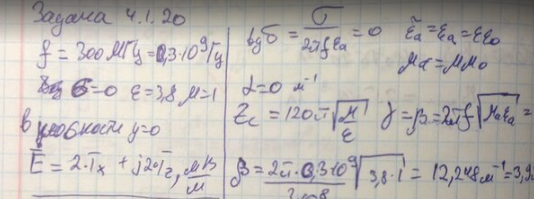 Задача 4.1.20
f = 300 МГц = 0,3·10⁹ Гц
σ=0 ε=3,8 μ=1
в плоскости y=0
Ē = 2·ī_x + j2·ī_z, мВ/м
tgδ = σ/(2πfε_a) = 0 ε̃_a = ε_a = εε_0
μ_a = μμ_0
α = 0 м⁻¹
Z_c = 120π√(μ/ε) γ = β = 2πf√(μ_aε_a) =
β = 2π·0,3·10⁹√(3,8·1) / 3·10⁸ = 12,248 м⁻¹ = 3,9